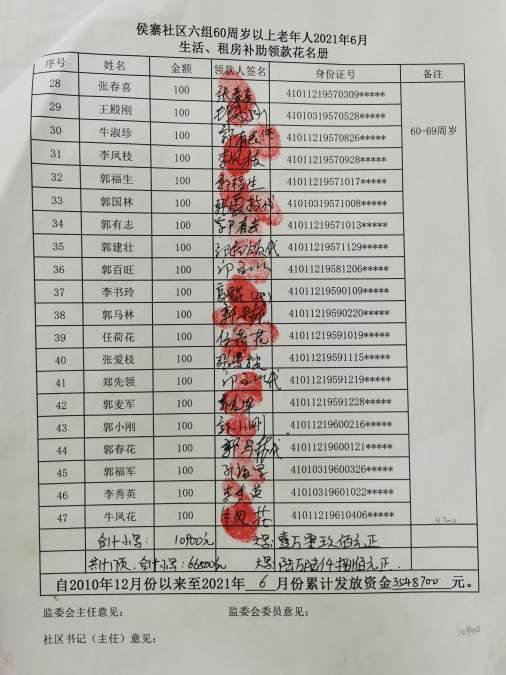 侯寨社区六组60周岁以上老年人2021年6月
生活、租房补助领款花名册
序号 姓名 金额 领款人签名 身份证号 备注
28 张春喜 100 张春喜 41011219570309*****
29 王殿刚 100 41010319570528*****
30 牛淑珍 100 41011219570826***** 60-69周岁
31 李凤枝 100 李凤枝 41011219570928*****
32 郭福生 100 郭福生 41011219571017*****
33 郭国林 100 41010319571008*****
34 郭有志 100 郭有志 41011219571013*****
35 郭建壮 100 41011219571129*****
36 郭百旺 100 41011219581206*****
37 李书玲 100 41011219590109*****
38 郭马林 100 41011219590220*****
39 任荷花 100 任荷花 41011219591019*****
40 张爱枝 100 张爱枝 41011219591115*****
41 郑先领 100 41011219591219*****
42 郭麦军 100 41011219591228*****
43 郭小刚 100 郭小刚 41011219600216*****
44 郭春花 100 41011219600121*****
45 郭福军 100 41010319600326*****
46 李秀英 100 李秀英 41010319601022*****
47 牛凤花 100 牛凤花 41011219610406*****
合计小写: 10900元 大写: 壹万零玖佰元正
共计 页, 合计小写: 66800元 大写: 陆万陆仟捌佰元正
自2010年12月份以来至2021年 6 月份累计发放资金3548700 元。
监委会主任意见: 监委会委员意见:
10900
社区书记（主任）意见: